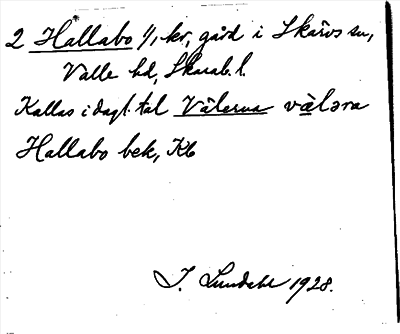 2 Hallabo 1/1 kr, gård i Skärvs sn,
Valle hd, Skarab. l.
Kallas i dagl. tal Välerna välǝra
Hallabo bek, Kb
I. Lundahl 1928.